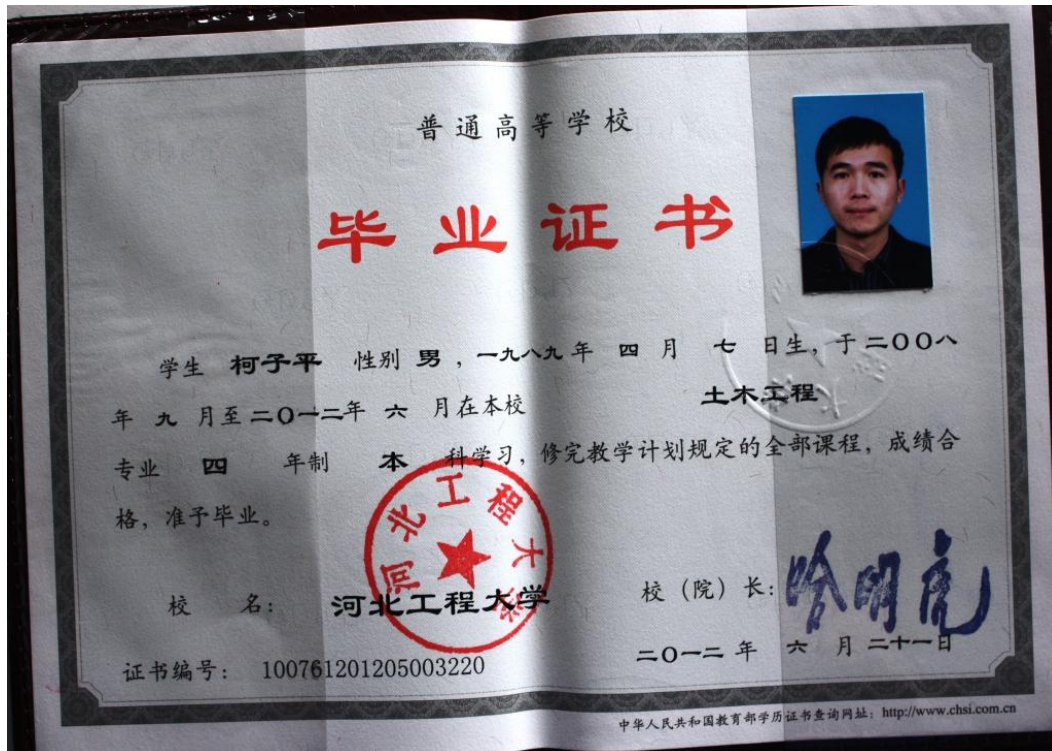 普通高等学校
毕业证书
学生 柯子平 性别 男，一九八九年 四 月 七 日生，于二〇〇八
年 九 月至二〇一二年 六 月在本校 土木工程
专业 四 年制 本 科学习，修完教学计划规定的全部课程，成绩合
格，准予毕业。
河北工程大学
校 名： 河北工程大学 校（院）长：哈明虎
证书编号： 100761201205003220 二〇一二 年 六 月 二十一日
中华人民共和国教育部学历证书查询网址：http://www.chsi.com.cn